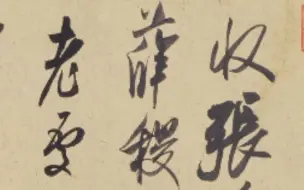 收張
薛稷
老